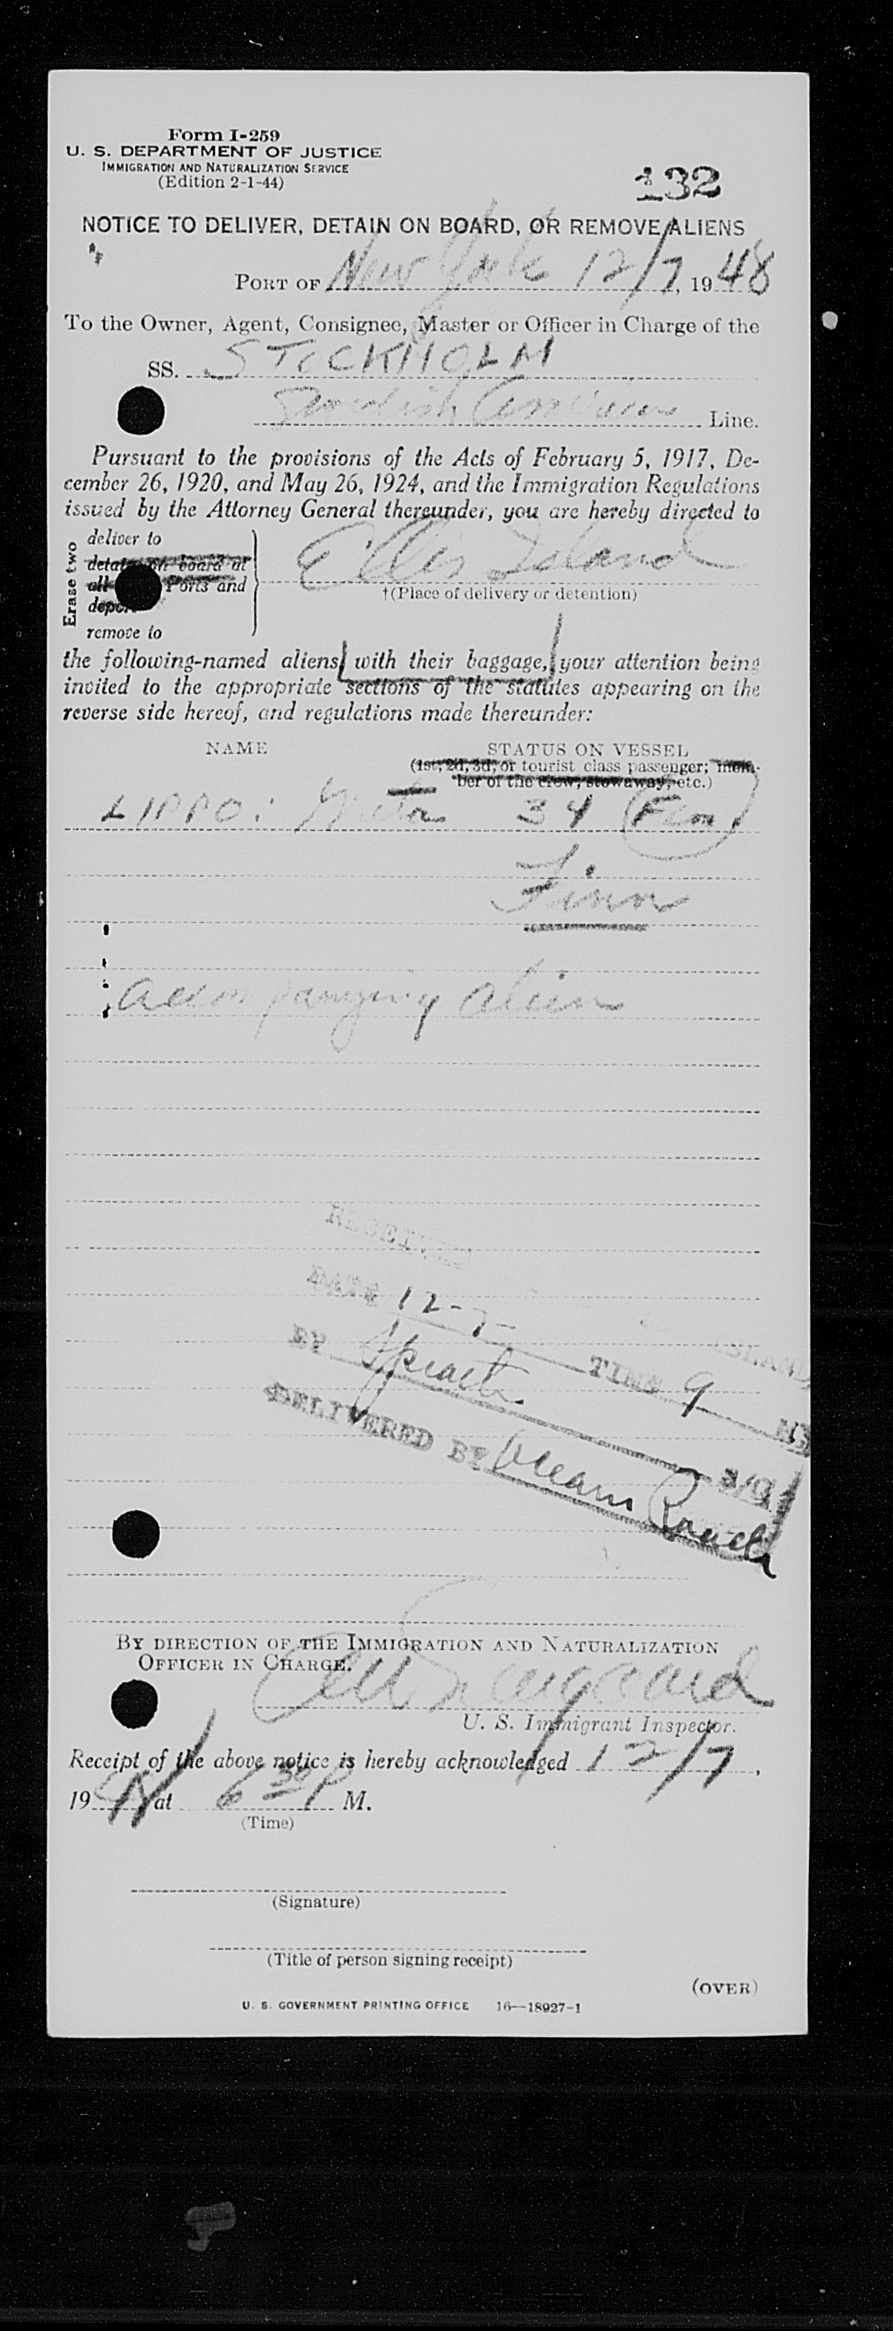 Form I-259
U. S. DEPARTMENT OF JUSTICE
IMMIGRATION AND NATURALIZATION SERVICE
(Edition 2-1-44)
132
NOTICE TO DELIVER, DETAIN ON BOARD, OR REMOVE ALIENS
PORT OF New York 12/7, 1948
To the Owner, Agent, Consignee, Master or Officer in Charge of the
SS. STOCKHOLM
Swedish American Line.
Pursuant to the provisions of the Acts of February 5, 1917, De-
cember 26, 1920, and May 26, 1924, and the Immigration Regulations
issued by the Attorney General thereunder, you are hereby directed to
Erase two
deliver to
detain on board at
all Ports and
deport
remove to
Ellis Island
†(Place of delivery or detention)
the following-named aliens, with their baggage, your attention being
invited to the appropriate sections of the statutes appearing on the
reverse side hereof, and regulations made thereunder:
NAME STATUS ON VESSEL
(1st, 2d, 3d, or tourist class passenger; mem-
ber of the crew, stowaway, etc.)
LIPPO: Greta 34 (Fem)
Finn
accompanying alien
RECEIVED ISLAND
DATE 12-7- TIME 9
BY
DELIVERED BY
BY DIRECTION OF THE IMMIGRATION AND NATURALIZATION
OFFICER IN CHARGE.
U. S. Immigrant Inspector.
Receipt of the above notice is hereby acknowledged 12/7,
1948 at 6 30 P M.
(Time)
(Signature)
(Title of person signing receipt)
(OVER)
U. S. GOVERNMENT PRINTING OFFICE 16—18927-1